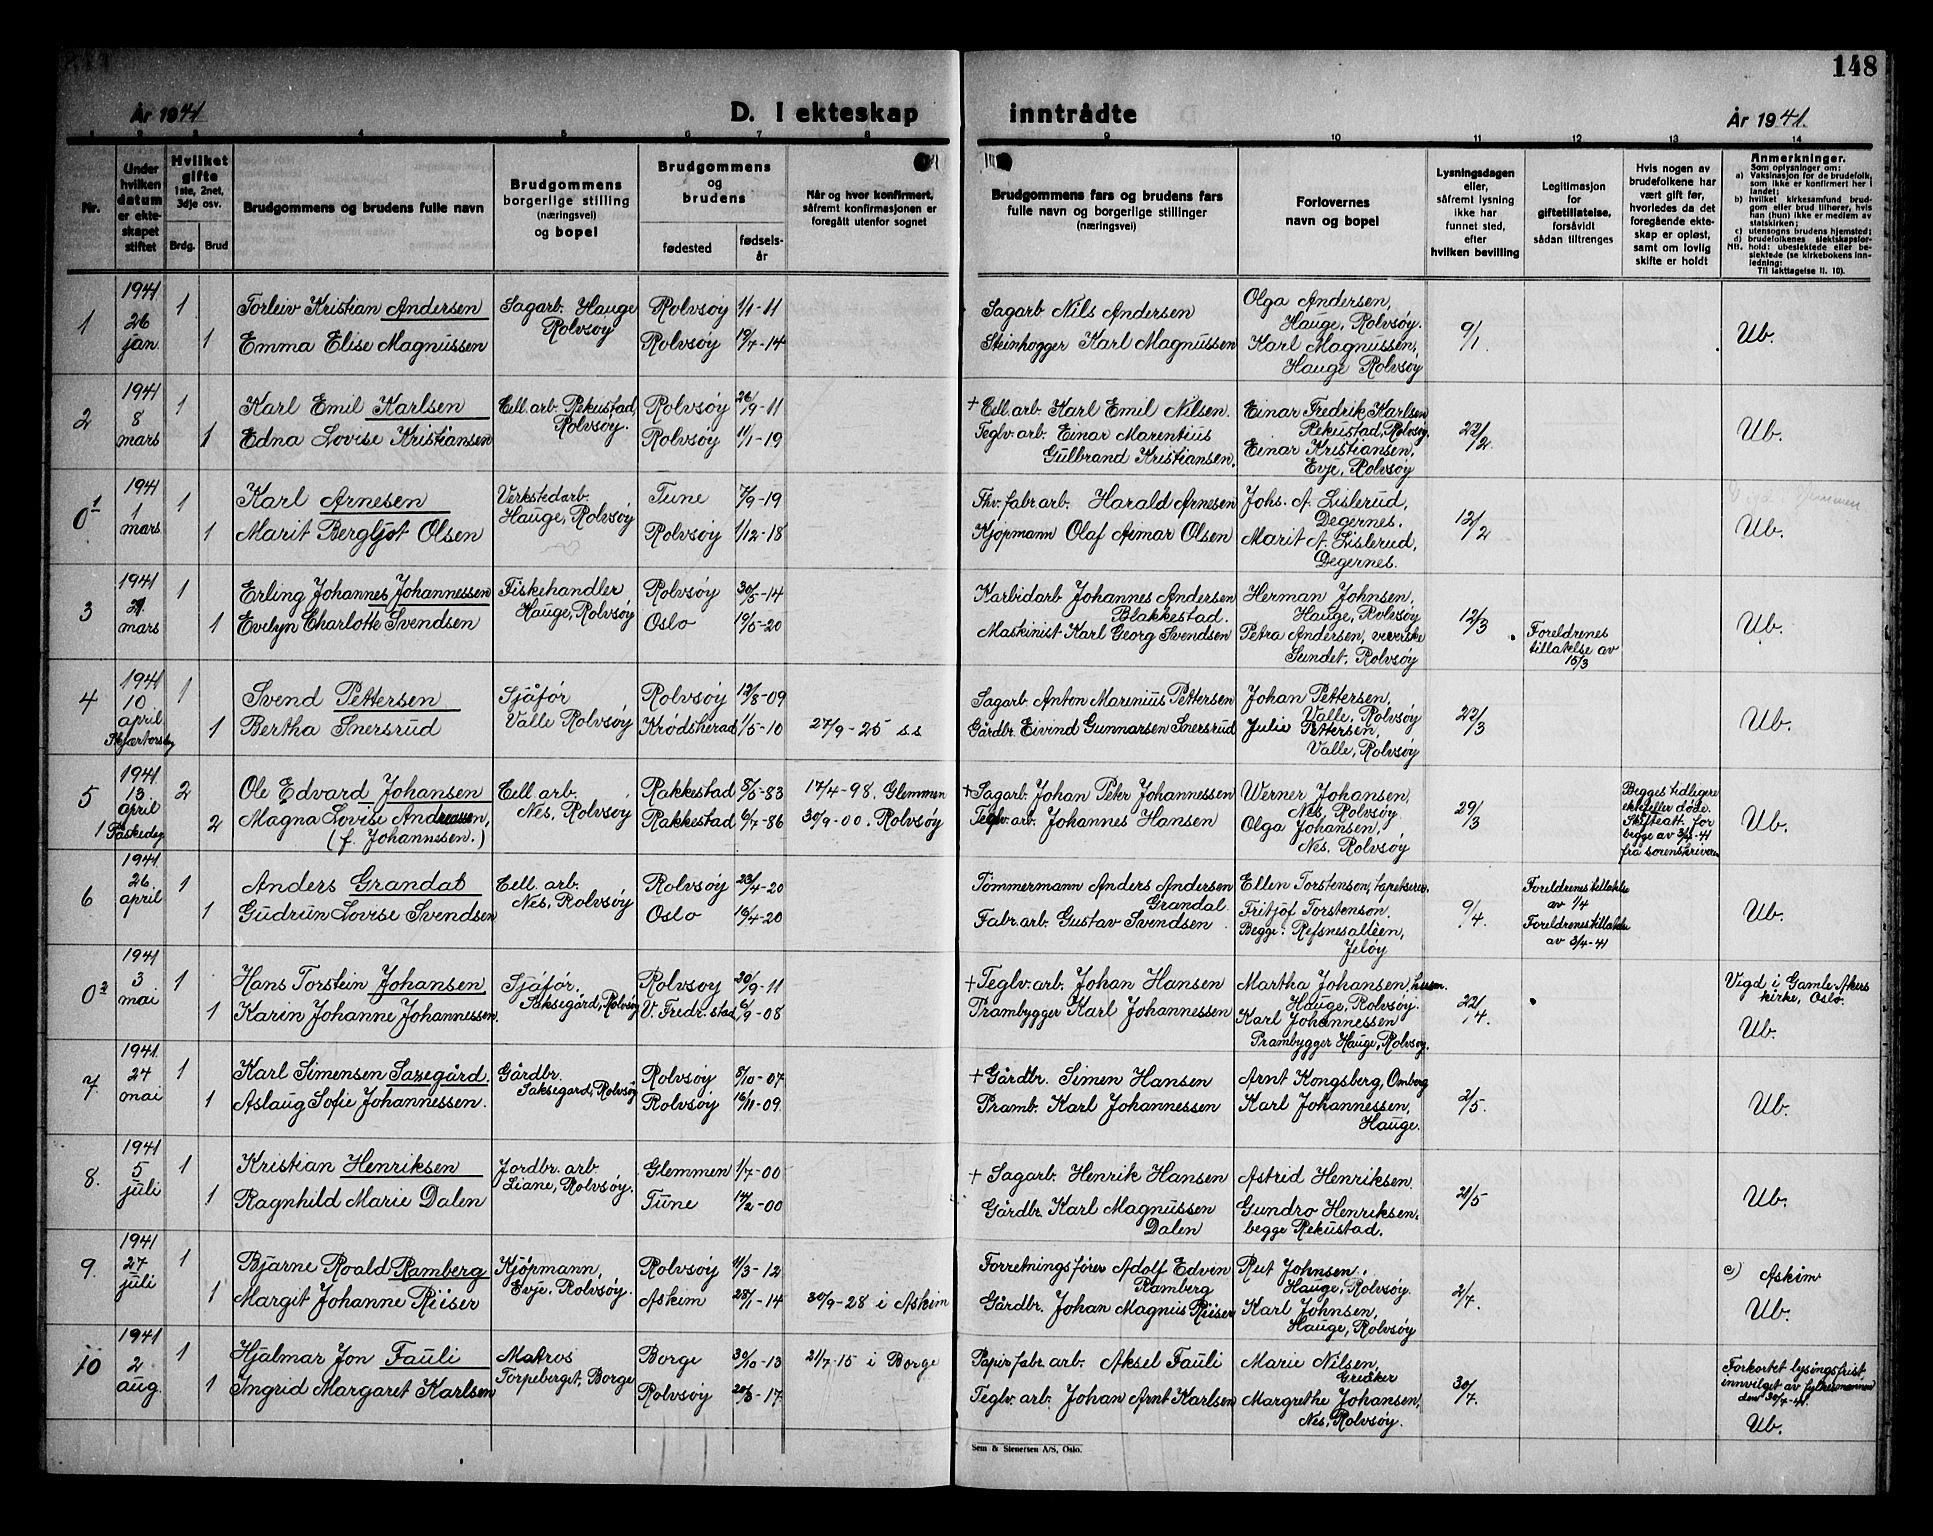 148
År 1941
D. I ekteskap
inntrådte
År 1941.
1 2 3 4 5 6 7 8 9 10 11 12 13 14
Nr.
Under hvilken datum er ekteskapet stiftet
Hvilket gifte 1ste, 2net, 3dje osv.
Brdg. Brud
Brudgommens og brudens fulle navn
Brudgommens borgerlige stilling (næringsvei) og bopel
Brudgommens og brudens
fødested
fødselsår
Når og hvor konfirmert, såfremt konfirmasjonen er foregått utenfor sognet
Brudgommens fars og brudens fars fulle navn og borgerlige stillinger (næringsvei)
Forlovernes navn og bopel
Lysningsdagen eller, såfremt lysning ikke har funnet sted, efter hvilken bevilling
Legitimasjon for giftetillatelse, forsåvidt sådan tiltrenges
Hvis nogen av brudefolkene har vært gift før, hvorledes da det foregående ekteskap er opløst, samt om lovlig skifte er holdt
Anmerkninger.
Som oplysninger om:
a) Vaksinasjon for de brudefolk, som ikke er konfirmert her i landet;
b) hvilket kirkesamfund brudgom eller brud tilhører, hvis han (hun) ikke er medlem av statskirken;
c) utensogns brudens hjemsted;
d) brudefolkenes slektskapsforhold: ubeslektede eller beslektede (se kirkebokens innledning:
NB. Til iakttagelse II. 10).
1 1941 26 jan. 1 Torleiv Kristian Andersen Sagarb. Hauge Rolvsøy Rolvsøy 1/1-11 Sagarb Nils Andersen Olga Andersen, Hauge, Rolvsøy. 9/1 Ub.
1 Emma Elise Magnussen Rolvsøy 19/7-14 Steinhogger Karl Magnussen Karl Magnussen, Hauge Rolvsøy
2 1941 8 mars 1 Karl Emil Karlsen Cell. arb. Rekustad, Rolvsøy. Rolvsøy 26/9-11 + Cell. arb. Karl Emil Nilsen. Einar Fredrik Karlsen Rekustad, Rolvsøy. 22/2. Ub.
1 Edna Lovise Kristiansen Rolvsøy 11/1-19 Teglv. arb. Einar Marentius Gulbrand Kristiansen. Einar Kristiansen, Evje, Rolvsøy
0¹ 1941 1 mars 1 Karl Arnesen Verkstedarb. Hauge, Rolvsøy Tune 7/9-19 Thv. fabr arb. Harald Arnesen Johs. A. Lislerud, Degernes. 12/2 Ub.
1 Marit Bergljot Olsen Rolvsøy 1/12-18 Kjøpmann Olaf Aimar Olsen Marit A. Lislerud, Degernes.
3 1941 21 mars 1 Erling Johannes Johannessen Fiskehandler Hauge, Rolvsøy Rolvsøy 30/5-14 Karbidarb Johannes Andersen Blakkestad. Herman Johnsen, Hauge, Rolvsøy 12/3 Ub.
1 Evelyn Charlotte Svendsen Oslo 19/5-20 Maskinist Karl Georg Svendsen Petra Andersen, veverske Sundet, Rolvsøy Foreldrenes tillatelse av 15/3
4 1941 10 april Skjærtorsdag 1 Svend Pettersen Sjåfør Valle Rolvsøy Rolvsøy 12/8-09 Sagarb Anton Marinius Pettersen Johan Pettersen, Valle, Rolvsøy 22/3 Ub.
1 Bertha Snersrud Krødsherad 1/5-10 27/9-25 s.s Gårdbr. Eivind Gunnarsen Snersrud Julie Pettersen, Valle, Rolvsøy
5 1941 13. april 1 Påskedag 2 Ole Edvard Johansen Cell. arb. Nes, Rolvsøy Rakkestad 8/5-83 17/4-98. Glemmen + Sagarb. Johan Peter Johannessen Werner Johansen, Nes, Rolvsøy. 29/3 Begges tidligere ektefeller døde. Skifteatt. for begge av 3/4-41 fra sorenskriveren Ub.
2 Magna Lovise Andreassen, (f. Johannssen.) Rakkestad 6/7-86 30/9-00. Rolvsøy Teglv. arb. Johannes Hansen Olga Johansen, Nes, Rolvsøy
6 1941 26. april 1 Anders Grandal Cell. arb. Nes, Rolvsøy Rolvsøy 23/4-20 Tömmermann Anders Andersen Grandal. Ellen Torstenson, tapetserer. 9/4. Foreldrenes tillatelse av 1/4 Ub.
1 Gudrun Lovise Svendsen Oslo 16/4-20 Fabr. arb. Gustav Svendsen Fritjof Torstenson. Begge: Refsnesalléen, Jeløy Foreldrenes tillatelse av 3/4-41
0² 1941 3 mai 1 Hans Torstein Johansen Sjåfør. Saksegård, Rolvsøy Rolvsøy 20/9-11 + Teglv. arb. Johan Hansen Martha Johansen, Hauge, Rolvsøy. 22/4. Vigd i Gamle Akers kirke, Oslo.
1 Karin Johanne Johannessen. V. Fredr.stad 6/9-08 Prambygger Karl Johannessen Karl Johannessen Prambygger Hauge, Rolvsøy. Ub.
7 1941. 24 mai 1 Karl Simensen Saxegård. Gårdbr. Saksegard, Rolvsøy Rolvsøy 8/10-07 + Gårdbr. Simen Hansen Arnt Kongsberg, Omberg 2/5. Ub.
1 Aslaug Sofie Johannessen. Rolvsøy 16/11-09. Pramb. Karl Johannessen Karl Johannessen, Hauge.
8. 1941 5 juli 1 Kristian Henriksen Jordbr. arb Liane, Rolvsøy. Glemmen 1/7-00 + Sagarb. Henrik Hansen Astrid Henriksen. 21/5 Ub.
1 Ragnhild Marie Dalen Tune 14/2-00 Gårdbr. Karl Magnussen Dalen Gundro Henriksen, begge Rekustad.
9. 1941 27 juli 1 Bjarne Roald Ramberg Kjøpmann, Evje, Rolvsøy. Rolvsøy 11/3-12 Forretningsfører Adolf Edvin Ramberg Rut Johnsen. Hauge, Rolvsøy. 2/7. c) Askim
1 Margit Johanne Riiser Askim 28/1-14 30/9-28 i Askim Gårdbr. Johan Magnus Riiser Karl Johnsen, Hauge, Rolvsøy Ub.
10 1941 2 aug. 1 Hjalmar Jon Fauli Matros Torpeberget, Borge Borge 30/10-13 21/7-15 i Borge Papirfabr. arb. Aksel Fauli Marie Nilsen, Greåker 30/7. Forkortet lysingsfrist innvilget av fylkesmannen den 30/7-41.
1 Ingrid Margaret Karlsen Rolvsøy 20/3-17 Teglv. arb. Johan Arnt Karlsen Margrethe Johansen, Nes, Rolvsøy. Ub.
Sem & Stenersen A/S, Oslo.